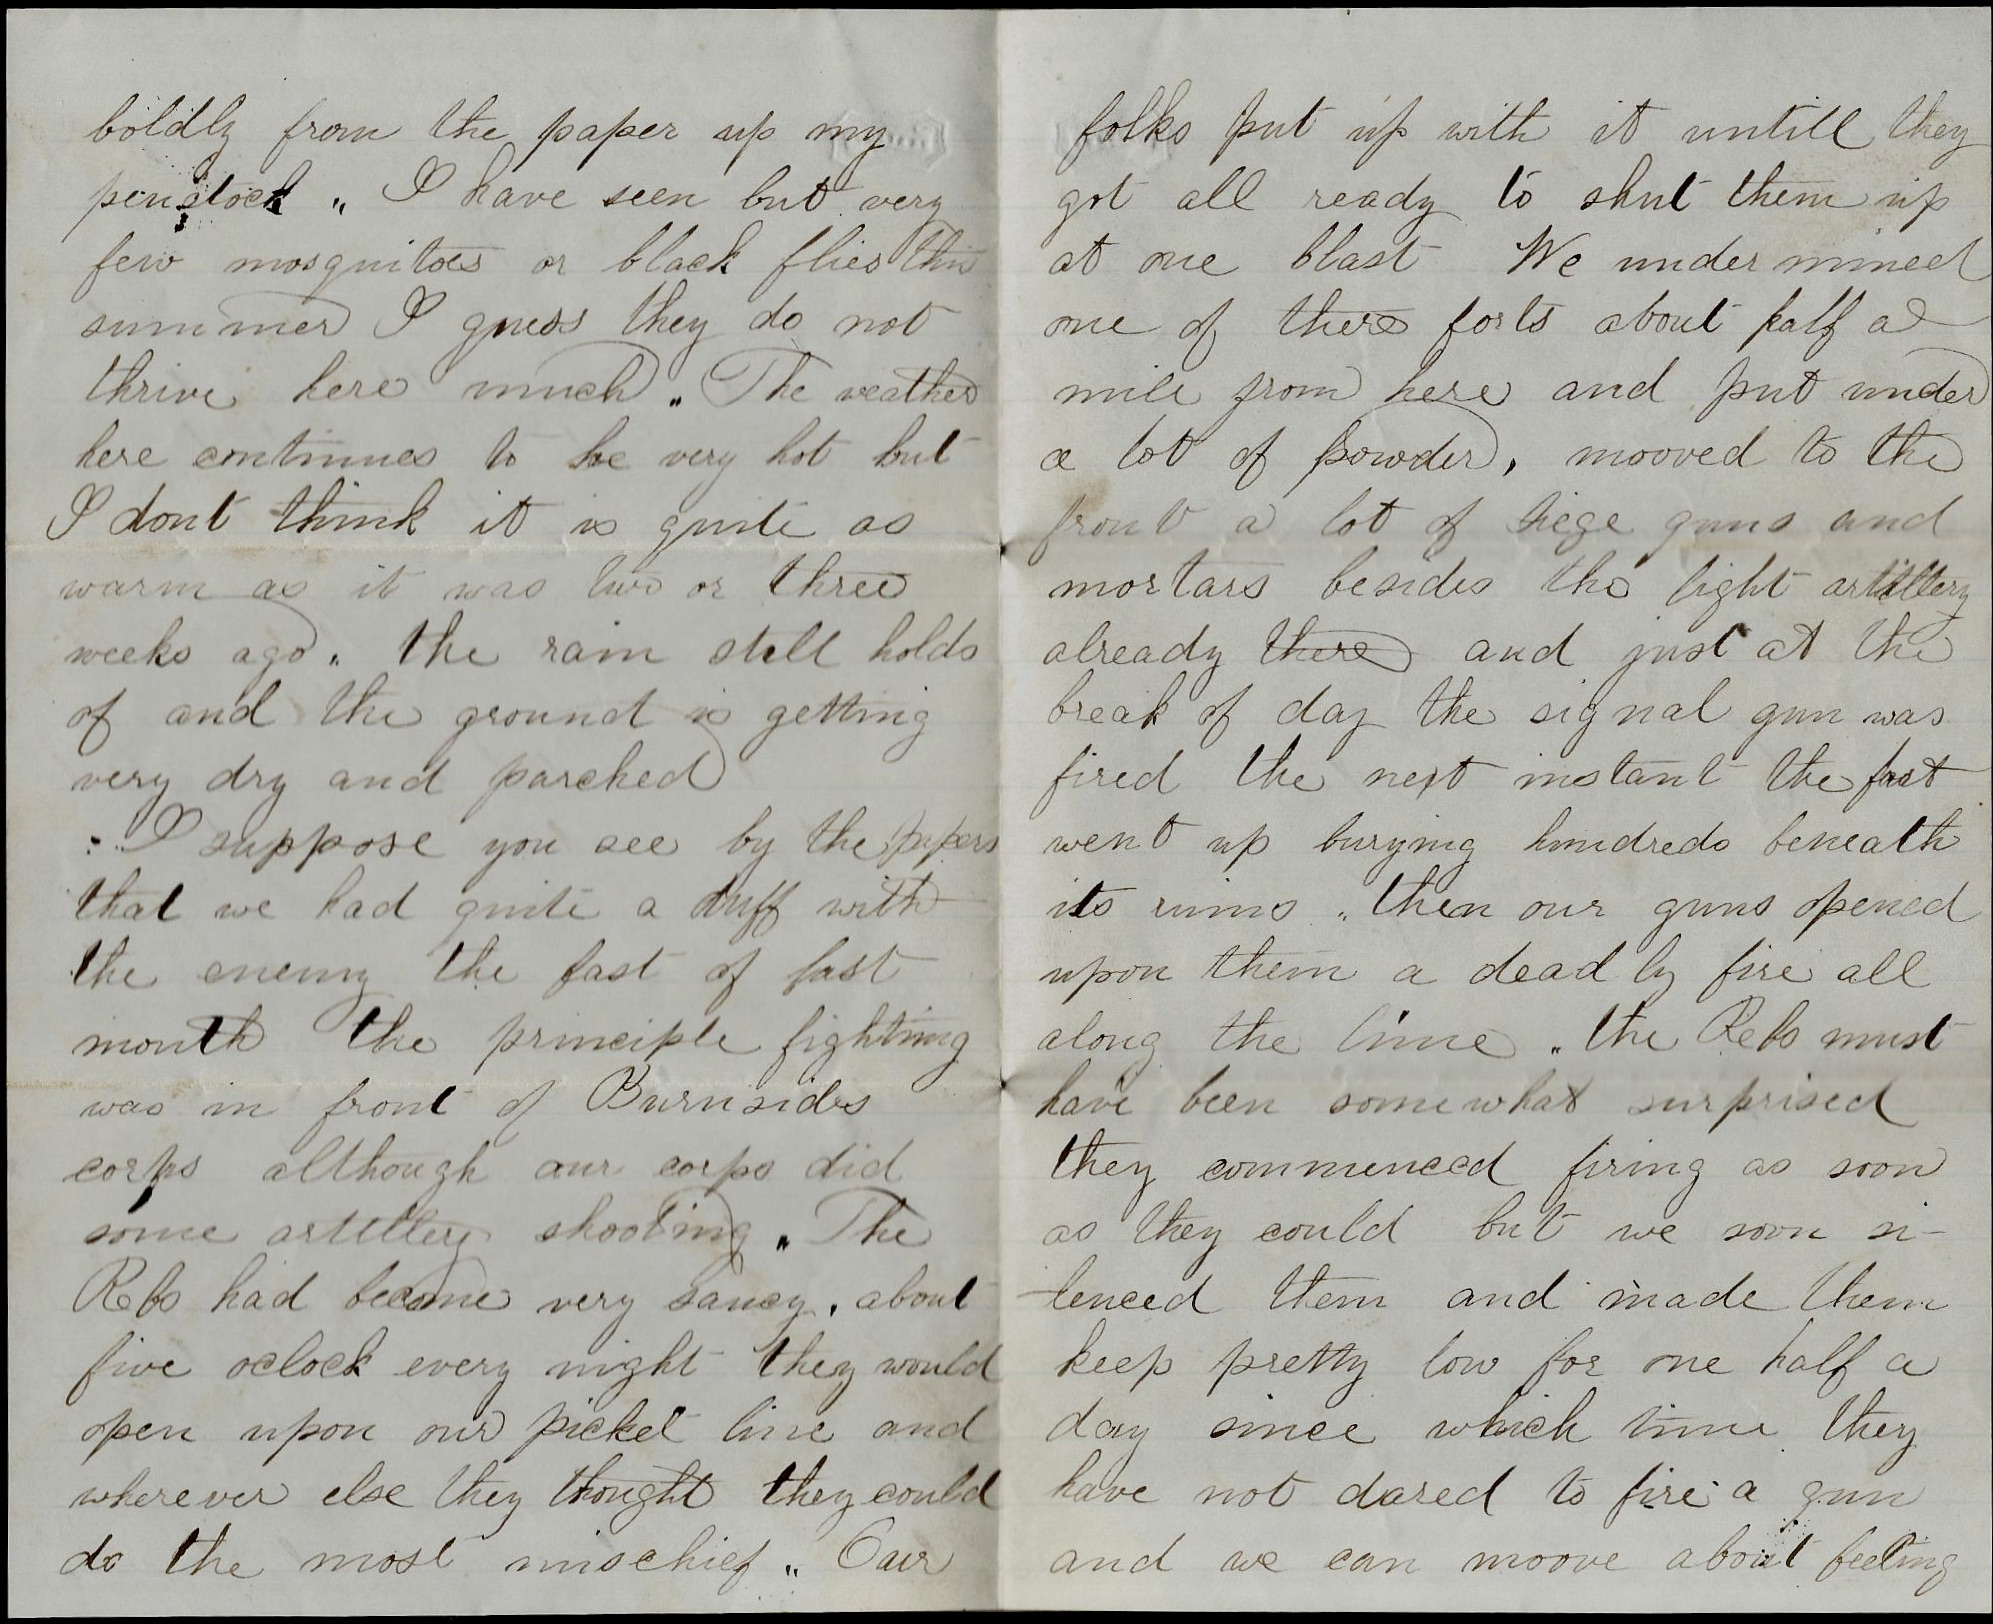 boldly from the paper up my
penstock „ I have seen but very
few mosquitoes or black flies this
summer I guess they do not
thrive here much „ The weather
here continues to be very hot but
I dont think it is quite as
warm as it was two or three
weeks ago „ the rain still holds
of and the ground is getting
very dry and parched
I suppose you see by the papers
that we had quite a with
the enemy the last of last
month the principle fighting
was in front of Burnsides
corps although our corps did
some artillery shooting „ The
Rebs had become very saucy . about
five oclock every night they would
open upon our picket line and
wherever else they thought they could
do the most mischief „ Our
folks put up with it untill they
got all ready to shut them up
at one blast We under mined
one of there forts about half a
mile from here and put under
a lot of powder , mooved to the
front a lot of siege guns and
mortars besides the light artillery
already there and just at the
break of day the signal gun was
fired the next instant the fort
went up burying hundreds beneath
its ruins „ then our guns opened
upon them a dead ly fire all
along the line „ the Rebs must
have been somewhat surprised
they commenced firing as soon
as they could but we soon si-
-lenced them and made them
keep pretty low for one half a
day since which time they
have not dared to fire a gun
and we can moove about feeling